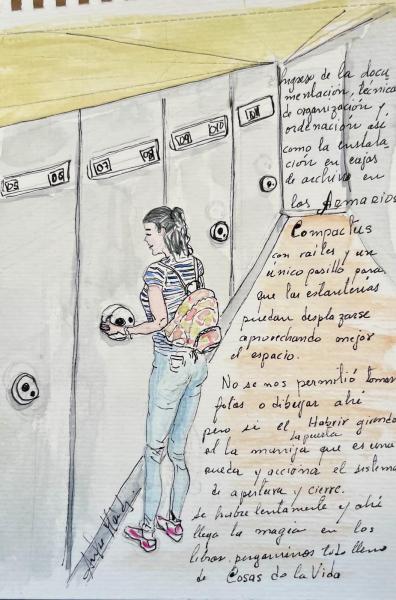 05 06
07 08
09 010
011
Ingreso de la docu
mentación, técnica
de organización y
ordenación así
como la instala
ción en cajas
de archivo en
los Armarios
Compactus
con railes y un
único pasillo para
que las estanterías
puedan desplazarse
aprovechando mejor
el espacio.
No se nos permitió tomar
fotos o dibujar ahí
pero si el Habrir girando
la puerta
la manija que es una
rueda y acciona el sistema
de apertura y cierre.
Se habre lentamente y ahí
llega la magia en los
libros, pergaminos todo lleno
de Cosas de la Vida